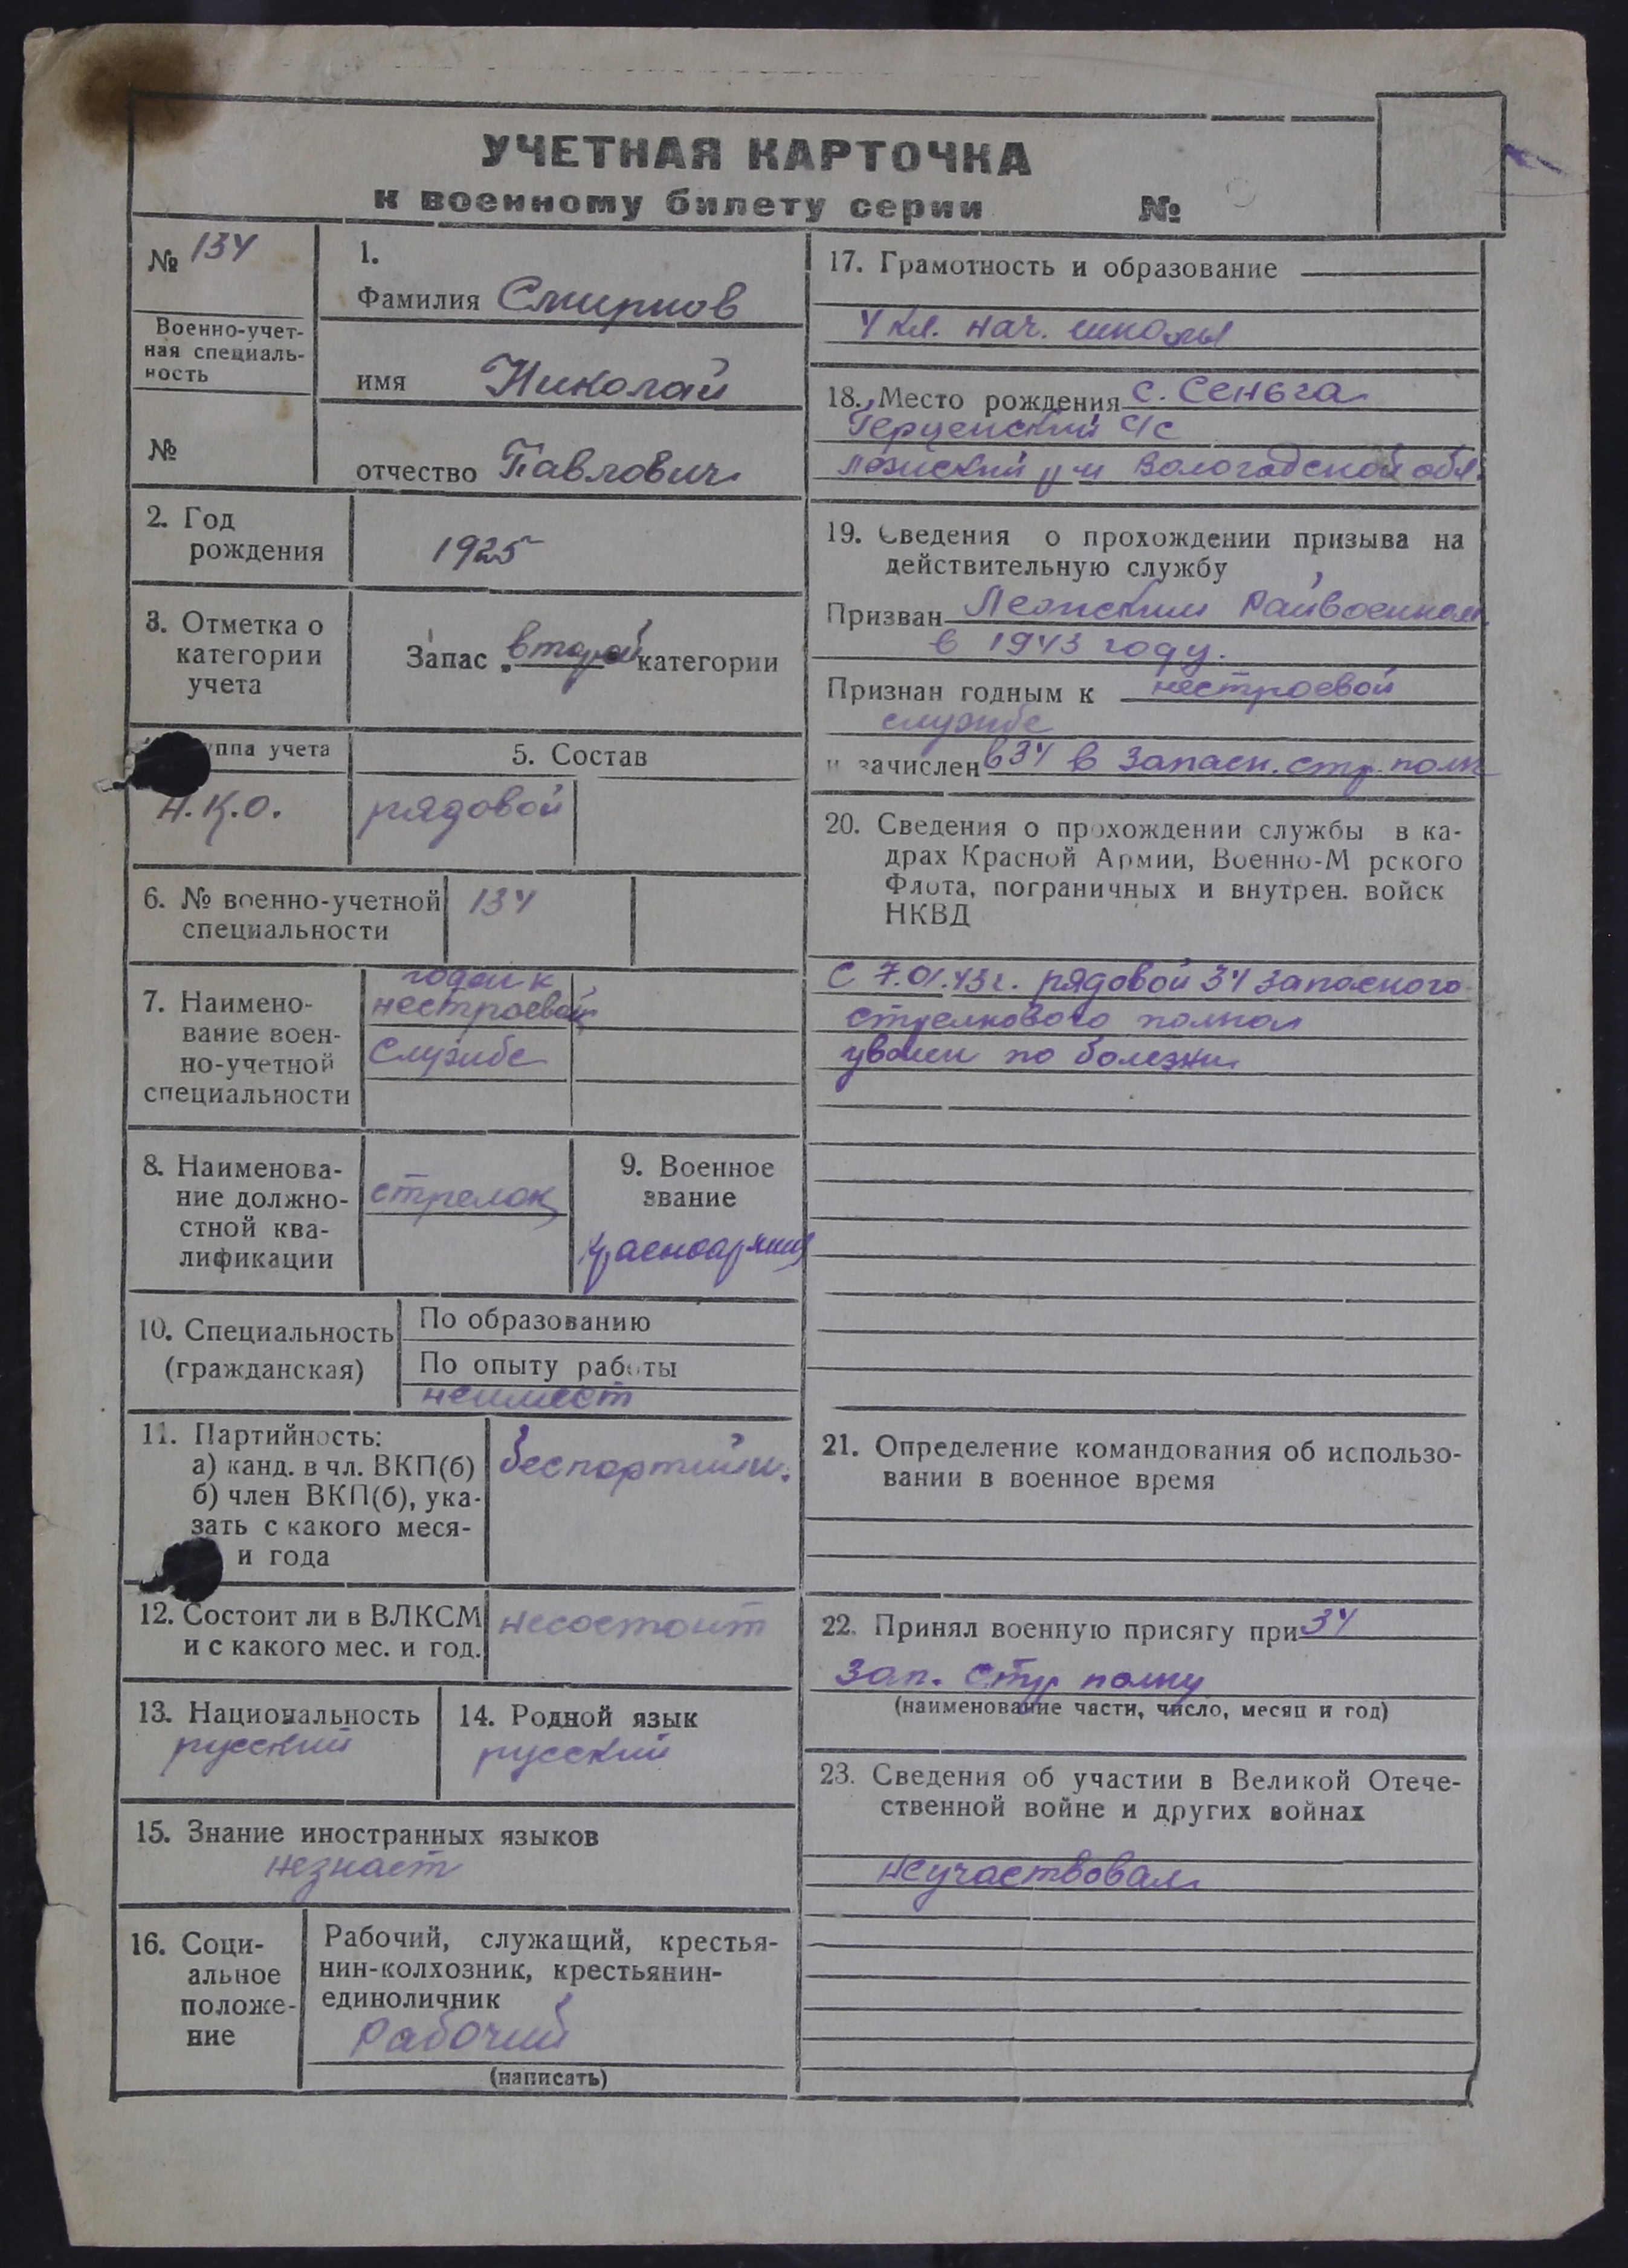 УЧЕТНАЯ КАРТОЧКА
к военному билету серии №
№ 134
Военно-учет-
ная специаль-
ность
№
1.
Фамилия Смирнов
имя Николай
отчество Павлович
2. Год
рождения
1925
3. Отметка о
категории
учета
Запас второй категории
уппа учета
Н.К.О.
5. Состав
рядовой
6. № военно-учетной
специальности
134
7. Наимено-
вание воен-
но-учетной
специальности
годен к
нестроевой
службе
8. Наименова-
ние должно-
стной ква-
лификации
стрелок
9. Военное
звание
красноармеец
10. Специальность
(гражданская)
По образованию
По опыту работы
неимеет
11. Партийность:
а) канд. в чл. ВКП(б)
б) член ВКП(б), ука-
зать с какого меся-
и года
беспартийн.
12. Состоит ли в ВЛКСМ
и с какого мес. и год.
несостоит
13. Национальность
русский
14. Родной язык
русский
15. Знание иностранных языков
незнает
16. Соци-
альное
положе-
ние
Рабочий, служащий, крестья-
нин-колхозник, крестьянин-
единоличник
рабочий
(написать)
17. Грамотность и образование
4 кл. нач. школы
18. Место рождения с. Сеньга
Герценский с/с
Лежский р-н Вологодской обл.
19. Сведения о прохождении призыва на
действительную службу
Призван Лежским Райвоенком.
в 1943 году.
Признан годным к нестроевой
службе
и зачислен в 34 в Запасн. стр. полк
20. Сведения о прохождении службы в ка-
драх Красной Армии, Военно-М рского
Флота, пограничных и внутрен. войск
НКВД
С 7.01.43г. рядовой 34 запасного
стрелкового полка
уволен по болезни
21. Определение командования об использо-
вании в военное время
22. Принял военную присягу при 34
зап. стр полку
(наименование части, число, месяц и год)
23. Сведения об участии в Великой Отече-
ственной войне и других войнах
неучаствовал